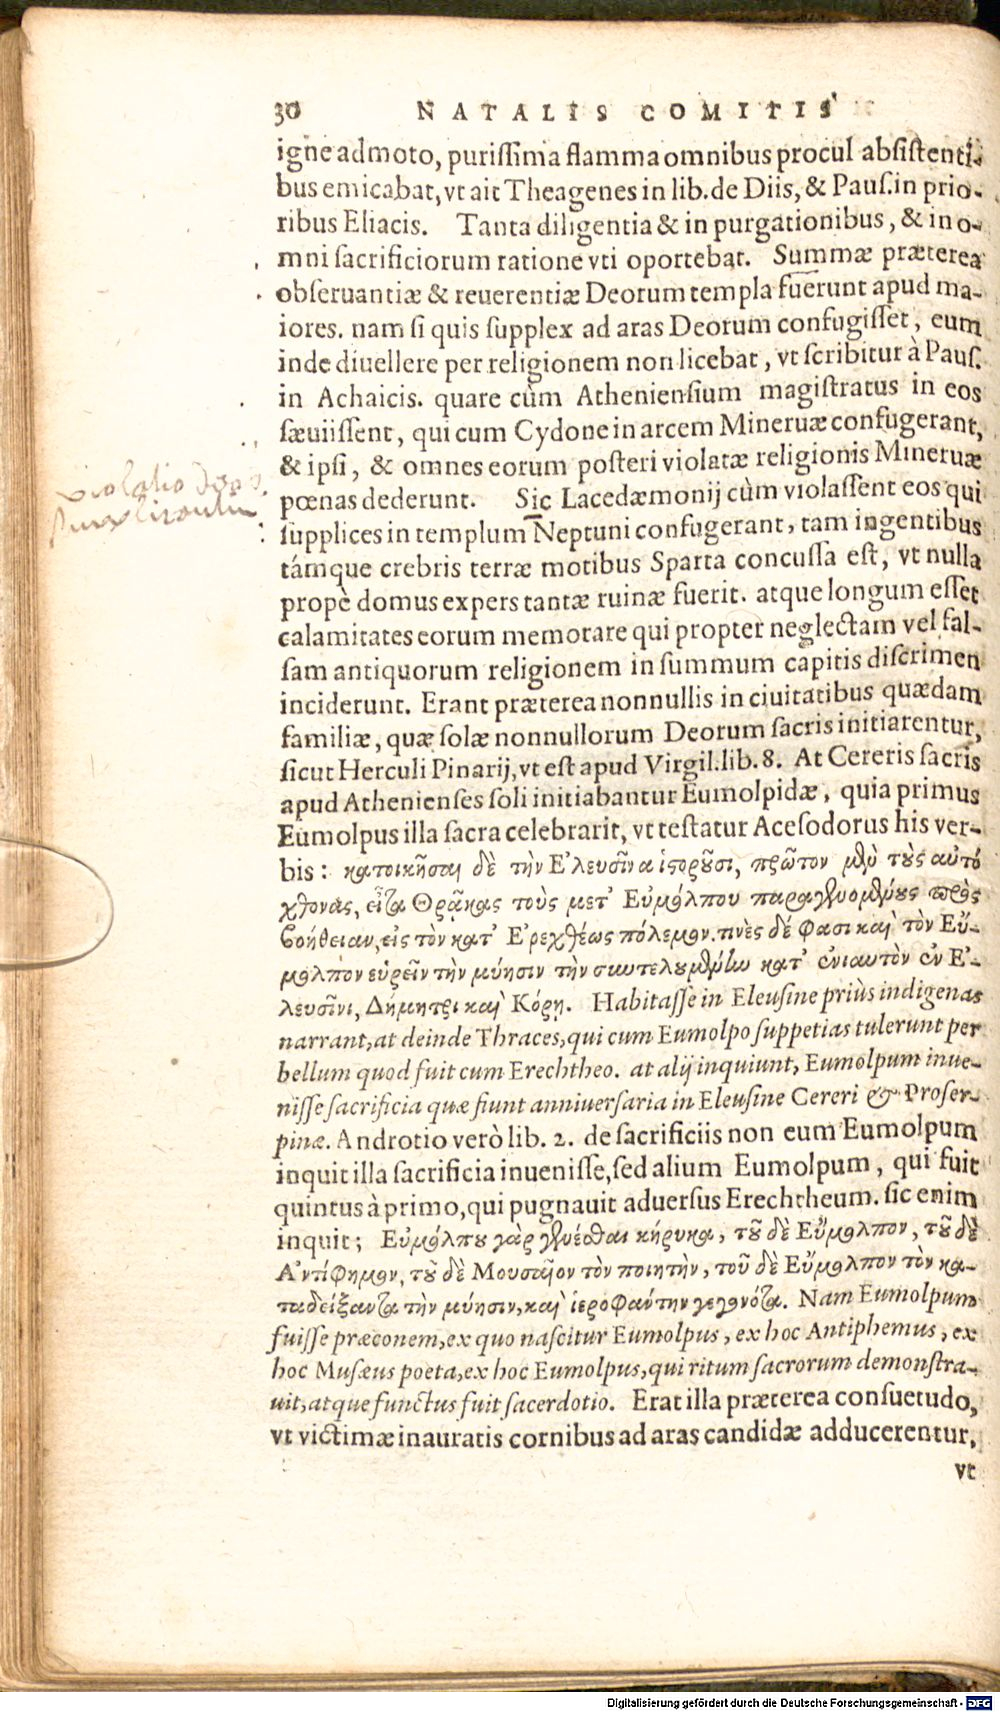 30 NATALIS COMITIS
igne admoto, purissima flamma omnibus procul absistenti-
bus emicabat, vt ait Theagenes in lib. de Diis, & Paus. in prio-
ribus Eliacis. Tanta diligentia & in purgationibus, & in o-
mni sacrificiorum ratione vti oportebat. Summæ præterea
obseruantiæ & reuerentiæ Deorum templa fuerunt apud ma-
iores. nam si quis supplex ad aras Deorum confugisset, eum
inde diuellere per religionem non licebat, vt scribitur à Paus.
in Achaicis. quare cùm Atheniensium magistratus in eos
sæuiissent, qui cum Cydone in arcem Mineruæ confugerant,
& ipsi, & omnes eorum posteri violatæ religionis Mineruæ
pœnas dederunt. Sic Lacedæmonij cùm violassent eos qui
supplices in templum Neptuni confugerant, tam ingentibus
támque crebris terræ motibus Sparta concussa est, vt nulla
propè domus expers tantæ ruinæ fuerit. atque longum esset
calamitates eorum memorare qui propter neglectam vel fal-
sam antiquorum religionem in summum capitis discrimen
inciderunt. Erant præterea nonnullis in ciuitatibus quædam
familiæ, quæ solæ nonnullorum Deorum sacris initiarentur,
sicut Herculi Pinarij, vt est apud Virgil. lib. 8. At Cereris sacris
apud Athenienses soli initiabantur Eumolpidæ, quia primus
Eumolpus illa sacra celebrarit, vt testatur Acesodorus his ver-
bis: κατοικῆσαι δὲ τὴν Ἐλευσῖνα ἱστοροῦσι, πρῶτον μὲν τοὺς αὐτό
χθονας, εἶτα Θρᾷκας τοὺς μετ' Εὐμόλπου παραγενομένους πρὸς
βοήθειαν, εἰς τὸν κατ' Ἐρεχθέως πόλεμον. τινὲς δέ φασι καὶ τὸν Εὔ-
μολπον εὑρεῖν τὴν μύησιν τὴν συντελουμένην κατ' ἐνιαυτὸν ἐν Ἐ-
λευσῖνι, Δήμητρι καὶ Κόρῃ. Habitasse in Eleusine priùs indigenas
narrant, at deinde Thraces, qui cum Eumolpo suppetias tulerunt per
bellum quod fuit cum Erechtheo. at alij inquiunt, Eumolpum inue-
nisse sacrificia quæ fiunt anniuersaria in Eleusine Cereri & Proser-
pinæ. Androtio verò lib. 2. de sacrificiis non eum Eumolpum
inquit illa sacrificia inuenisse, sed alium Eumolpum, qui fuit
quintus à primo, qui pugnauit aduersus Erechtheum. sic enim
inquit; Εὐμόλπου γὰρ γενέσθαι κήρυκα, τοῦ δὲ Εὔμολπον, τοῦ δὲ
Ἀντίφημον, τοῦ δὲ Μουσαῖον τὸν ποιητὴν, τοῦ δὲ Εὔμολπον τὸν κα-
ταδείξαντα τὴν μύησιν, καὶ ἱεροφάντην γεγονότα. Nam Eumolpum
fuisse præconem, ex quo nascitur Eumolpus, ex hoc Antiphemus, ex
hoc Musæus poeta, ex hoc Eumolpus, qui ritum sacrorum demonstra-
uit, atque functus fuit sacerdotio. Erat illa præterea consuetudo,
vt victimæ inauratis cornibus ad aras candidæ adducerentur,
vt
violatio
Digitalisierung gefördert durch die Deutsche Forschungsgemeinschaft - DFG